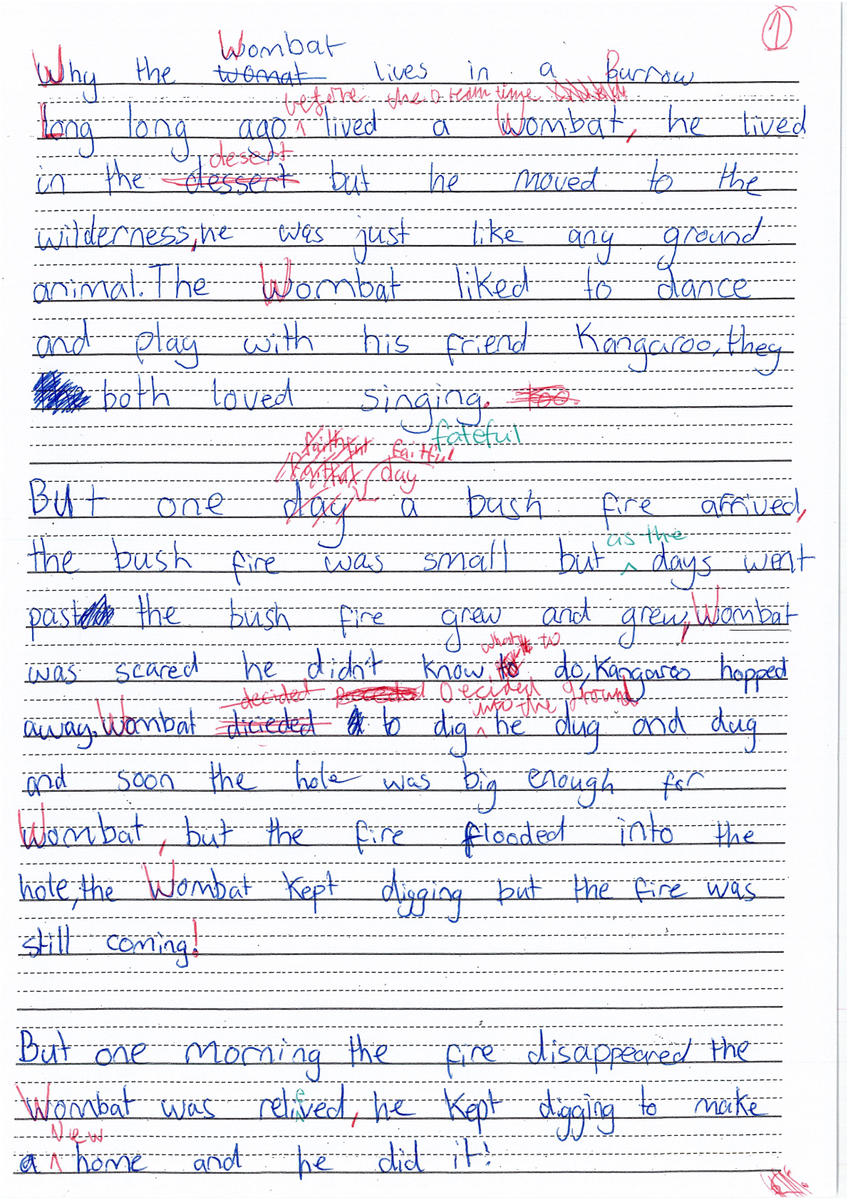 1
Wombat
Why the womat lives in a Burrow
before the Dreamtime
Long long ago lived a Wombat, he lived
desert
in the dessert but he moved to the
wilderness, he was just like any ground
animal. The Wombat liked to dance
and play with his friend Kangaroo, they
both loved singing. too.
fateful
faithful
day
But one day a bush fire arrived,
as the
the bush fire was small but days went
past the bush fire grew and grew, Wombat
what to
was scared he didn't know to do, Kangaroo hopped
decided Decided into the ground
away. Wombat dicieded to dig he dug and dug
and soon the hole was big enough for
Wombat, but the fire flooded into the
hole, the Wombat kept digging but the fire was
still coming!
But one morning the fire disappeared the
Wombat was relieved, he kept digging to make
New
a home and he did it!